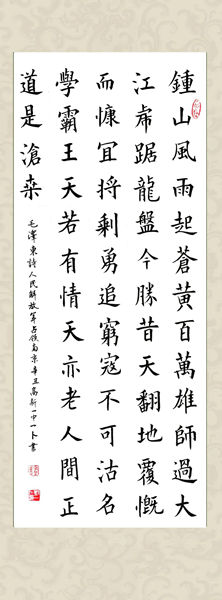 鍾山風雨起蒼黃百萬雄師過大
江乕踞龍盤今勝昔天翻地覆慨
而慷冝将剩勇追窮寇不可沽名
學霸王天若有情天亦老人間正
道是滄桒
毛澤東詩人民解放軍占領南京辛丑高新一中一卜書